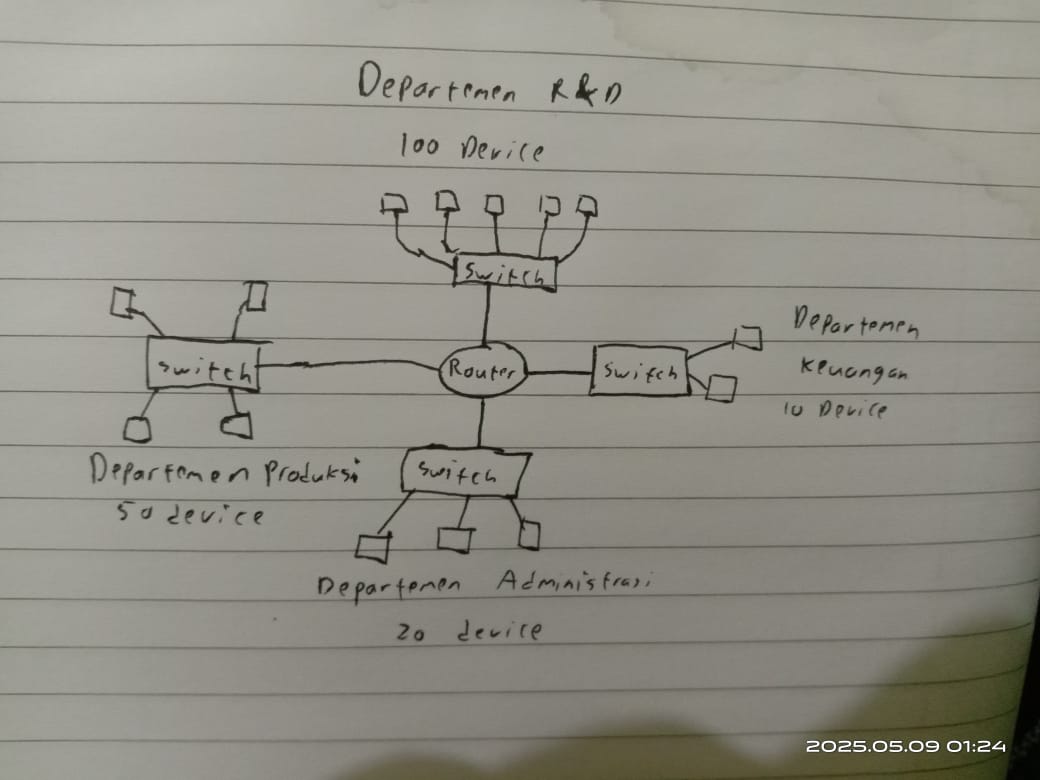 Departemen R&D
100 Device
Switch
Switch
Router
Switch
Departemen
Keuangan
10 Device
Departemen Produksi
50 device
Switch
Departemen Administrasi
20 device
2025.05.09 01:24